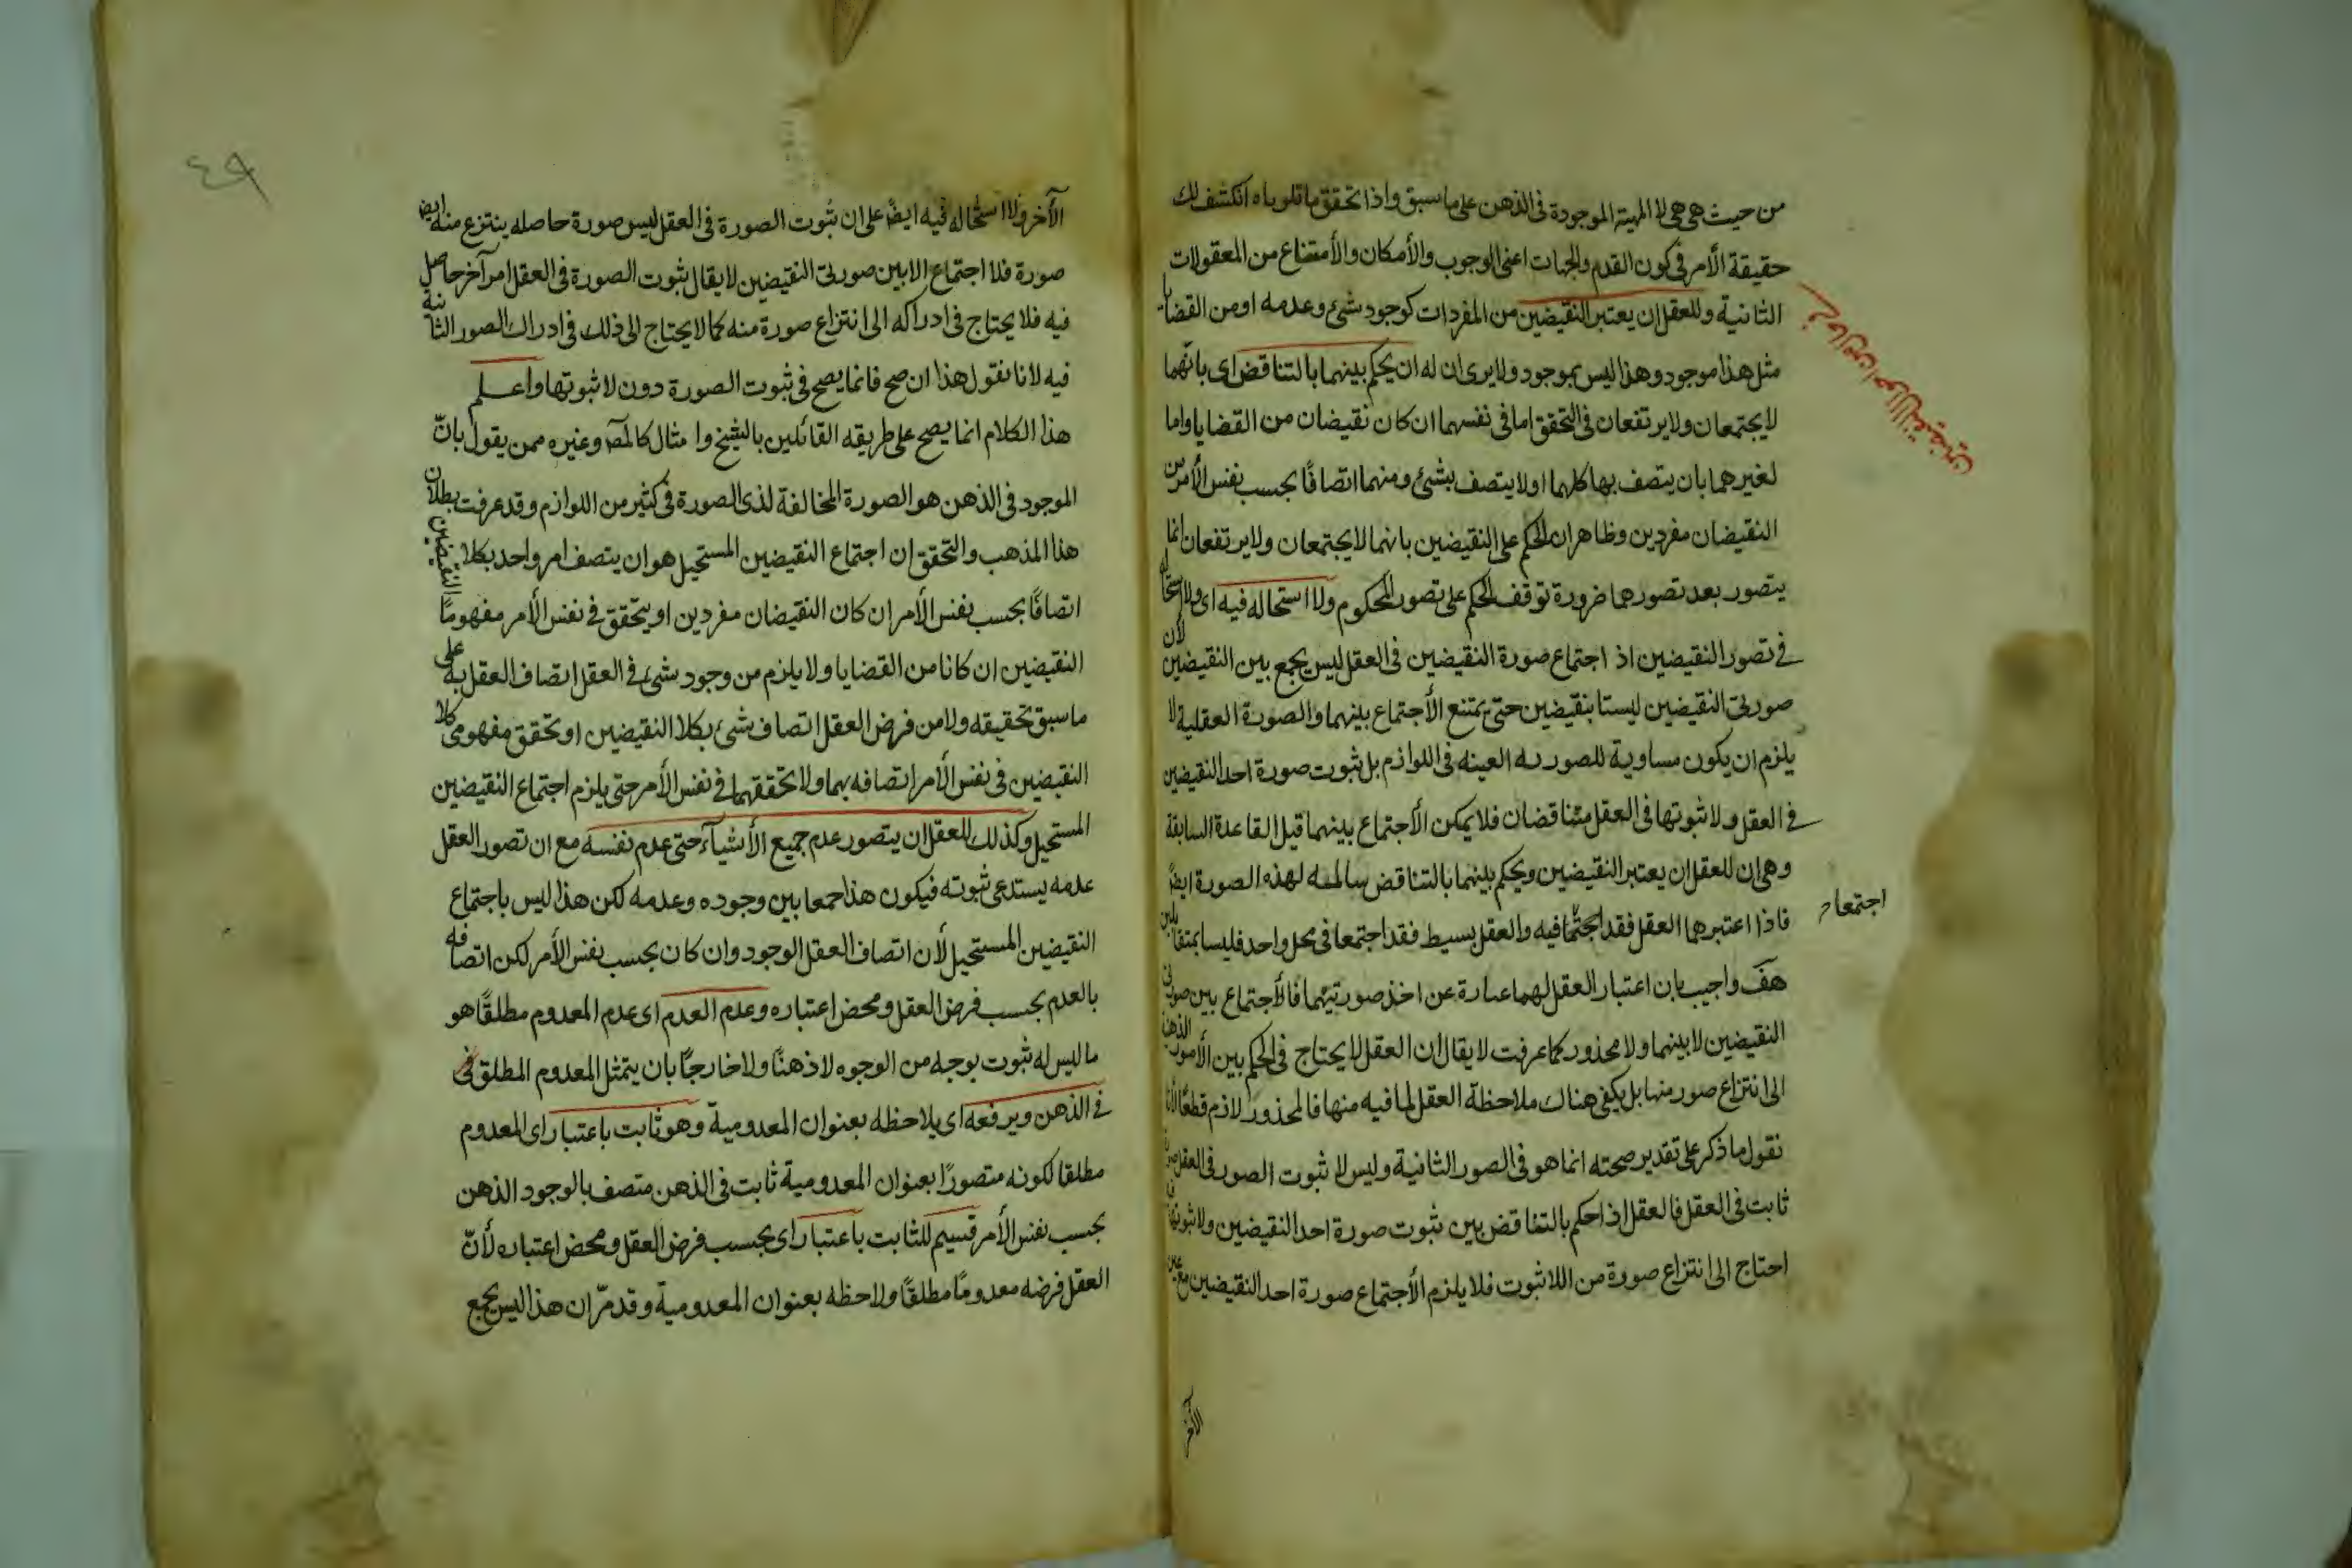 من حيث هى هى لا المهية الموجودة فى الذهن على ما سبق واذا تحقق ما تلوناه انكشف لك
حقيقة الأمر فى كون القدم والجهات اعنى الوجوب والأمكان والأمتناع من المعقولات
الثانية وللعقل ان يعتبر النقيضين من المفردات كوجود شئ وعدمه او من القضايا
مثل هذا موجود وهذا ليس بموجود ولا يرى ان له ان يحكم بينهما بالتناقض اى بانهما
لا يجتمعان ولا يرتفعان فى التحقق اما فى نفسهما ان كان نقيضان من القضايا واما
لغيرهما بان يتصف بها كلهما او لا يتصف بشئ ومنهما اتصافًا بحسب نفس الأمر ان
النقيضان مفردين وظاهر ان الحكم على النقيضين بانهما لا يجتمعان ولا يرتفعان انما
يتصور بعد تصورهما ضرورة توقف الحكم على تصور المحكوم ولا استحاله فيه اى ولا استحالة
فى تصور النقيضين اذ اجتماع صورة النقيضين فى العقل ليس بجمع بين النقيضين لأن
صورتى النقيضين ليستا بنقيضين حتى يمتنع الأجتماع بينهما والصورة العقلية لا
يلزم ان يكون مساوية للصورية العينه فى اللوازم بل ثبوت صورة احد النقيضين
فى العقل ولا ثبوتها فى العقل متناقضان فلا يمكن الأجتماع بينهما قيل القاعدة السابقة
وهى ان للعقل ان يعتبر النقيضين ويحكم بينهما بالتناقض سالمه لهذه الصورة ايضً
فاذا اعتبرهما العقل فقد اجتمعا فيه والعقل بسيط فقد اجتمعا فى محل واحد فليسا بمتقابلين
اجتمعا
هف واجيب بان اعتبار العقل لهما عبارة عن اخذ صورتيهما فالأجتماع بين صورتى
النقيضين لا بينهما ولا محذور كما عرفت لا يقال ان العقل لا يحتاج فى الحكم بين الأمور الذهن
الى انتزاع صور منها بل يكفى هناك ملاحظة العقل لما فيه منها فالمحذور لازم قطعًا لأنا
نقول ما ذكر على تقدير صحته انما هو فى الصور الثانية وليس لا ثبوت الصور فى العقل
ثابت فى العقل فالعقل اذا حكم بالتناقض بين ثبوت صورة احد النقيضين ولا ثبوتها
احتاج الى انتزاع صورة من اللاثبوت فلا يلزم الأجتماع صورة احد النقيضين مع عين
الآخر
٤٩
الآخر ولا استحاله فيه ايضً على ان ثبوت الصورة فى العقل ليس صورة حاصله ينتزع منه ايض
صورة فلا اجتماع الا بين صورتى النقيضين لا يقال ثبوت الصورة فى العقل امر آخر حاصل
فيه فلا يحتاج فى ادراكه الى انتزاع صورة منه كما لا يحتاج الى ذلك فى ادراك الصور الثانية
فيه لانا نقول هذا ان صح فانما يصح فى ثبوت الصورة دون لا ثبوتها واعلم
هذا الكلام انما يصح على طريقه القائلين بالشبخ وا مثال كالمص وغيره ممن يقول بانّ
الموجود فى الذهن هو الصورة المخالفة لذى الصورة فى كثير من اللوازم وقد عرفت بطلان
هذا المذهب والتحقق ان اجتماع النقيضين المستحيل هو ان يتصف امر واحد بكلا النقيضين
اتصافًا بحسب نفس الأمر ان كان النقيضان مفردين او يتحقق فى نفس الأمر مفهومًا
النقيضين ان كانا من القضايا ولا يلزم من وجود شئ فى العقل اتصاف العقل به على
ما سبق تحقيقه ولا من فرض العقل اتصاف شئ بكلا النقيضين او تحقق مفهومى كلا
النقيضين فى نفس الأمر اتصافه بهما ولا تحققهما فى نفس الأمر حتى يلزم اجتماع النقيضين
المستحيل وكذلك للعقل ان يتصور عدم جميع الأشيآء حتى عدم نفسه مع ان تصور العقل
عدمه يستدعى ثبوته فيكون هذا جمعا بين وجوده وعدمه لكن هذا ليس باجتماع
النقيضين المستحيل لأن اتصاف العقل الوجود وان كان بحسب نفس الأمر لكن اتصافه
بالعدم بحسب فرض العقل ومحض اعتباره وعدم العدم اى عدم المعدوم مطلقًا هو
ما ليس له ثبوت بوجه من الوجوه لا ذهنًا ولا خارجًا بان يتمثل المعدوم المطلق فى
فى الذهن ويرفعه اى يلاحظه بعنوان المعدومية وهو ثابت باعتبار اى المعدوم
مطلقا لكونه متصورًا بعنوان المعدومية ثابت فى الذهن متصف بالوجود الذهن
بحسب نفس الأمر قسيم للثابت باعتبار اى بحسب فرض العقل ومحض اعتباره لأنّ
العقل فرضه معدومًا مطلقًا ولاحظه بعنوان المعدومية وقد مرّ ان هذا ليس بجمع